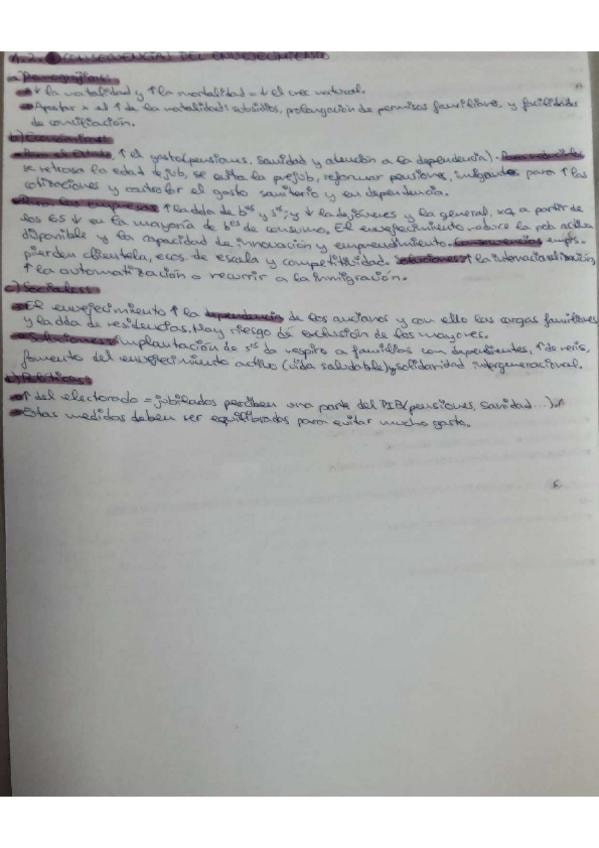 1.2. CONSECUENCIAS DEL ENVEJECIMIENTO
a) Demográficas:
↓ la natalidad y ↑ la mortalidad = ↓ el crec natural.
Apostar x el ↑ de la natalidad: subsidios, prolongación de permisos familiares, y facilidades
de conciliación.
b) Económicas:
Para el Estado, ↑ el gasto (pensiones, sanidad y atención a la dependencia). Para reducirlo
se retrasa la edad de jub, se evita la prejub, reformar pensiones, inmigrantes para ↑ las
cotizaciones y controlar el gasto sanitario y en dependencia.
Para las empresas ↑ la dda de bᵉˢ y sˢ; y ↓ la de jóvenes y la general, xq a partir de
los 65 ↓ en la mayoría de bᵉˢ de consumo. El envejecimiento reduce la pob activa
disponible y la capacidad de innovación y emprendimiento. Consecuencias emps.
pierden clientela, ecos. de escala y competitividad. Soluciones: ↑ la internacionalización,
↑ la automatización o recurrir a la inmigración.
c) Sociales:
El envejecimiento ↑ la dependencia de los ancianos y con ello las cargas familiares
y la dda de residencias. Hay riesgo de exclusión de los mayores.
Soluciones: Implantación de sˢ de respiro a familias con dependientes, ↑ de resis,
fomento del envejecimiento activo (vida saludable) y solidaridad intergeneracional.
Políticas:
↑ del electorado = jubilados perciben una parte del PIB (pensiones, sanidad...).
Estas medidas deben ser equilibradas para evitar mucho gasto.